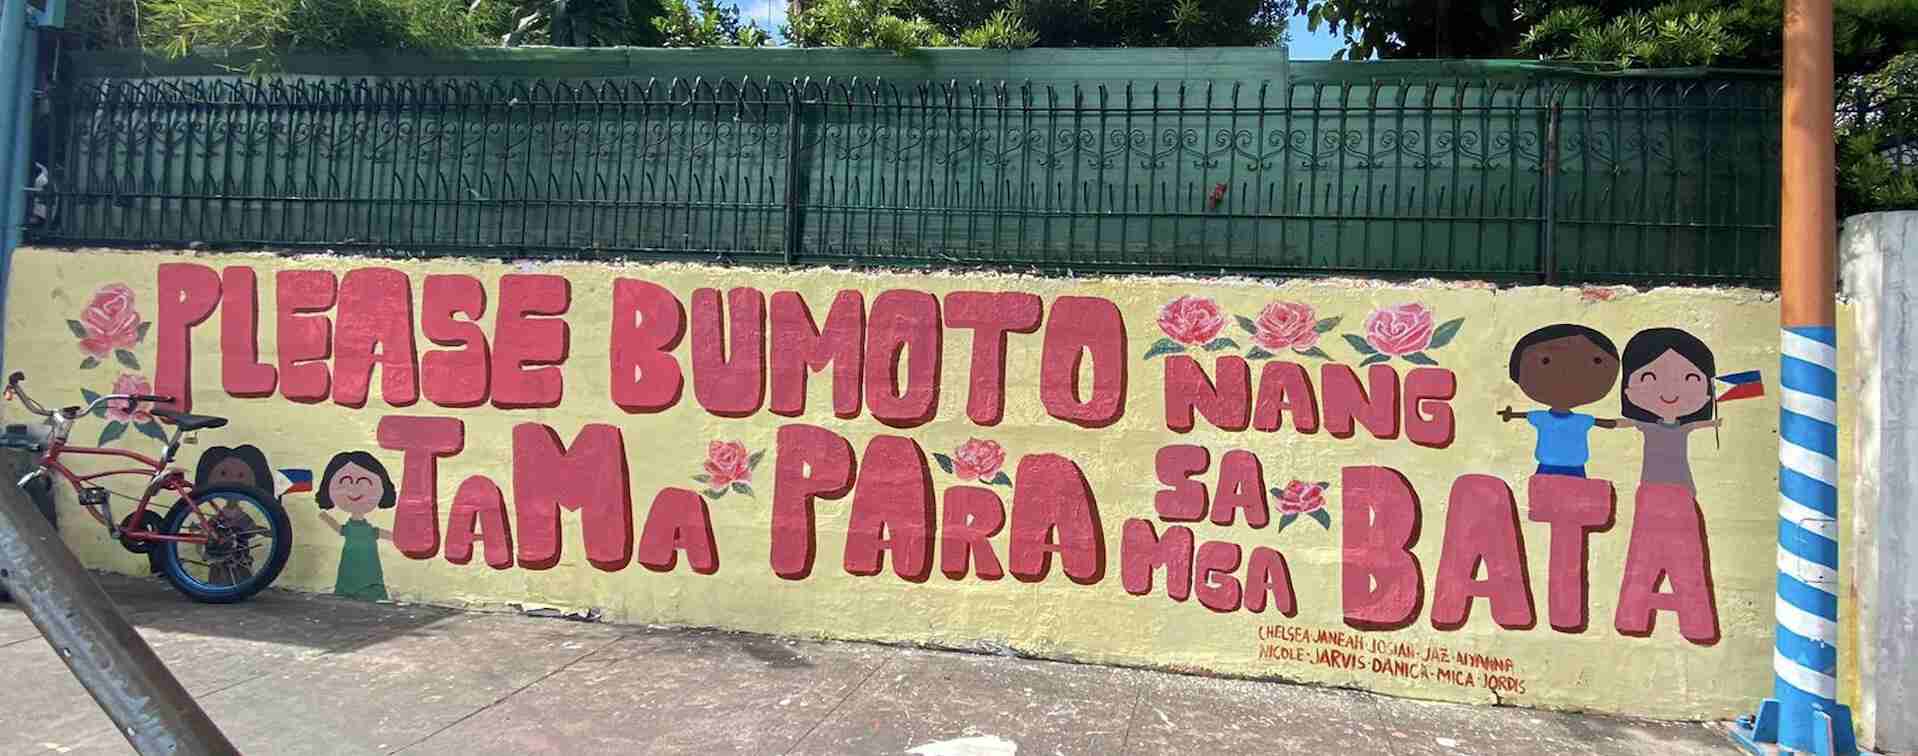 PLEASE BUMOTO NANG
TAMA PARA SA MGA BATA
CHELSEA·JANEAH·JOSIAH·JAZ·AIYANNA
NICOLE·JARVIS·DANICA·MICA·JORDIS